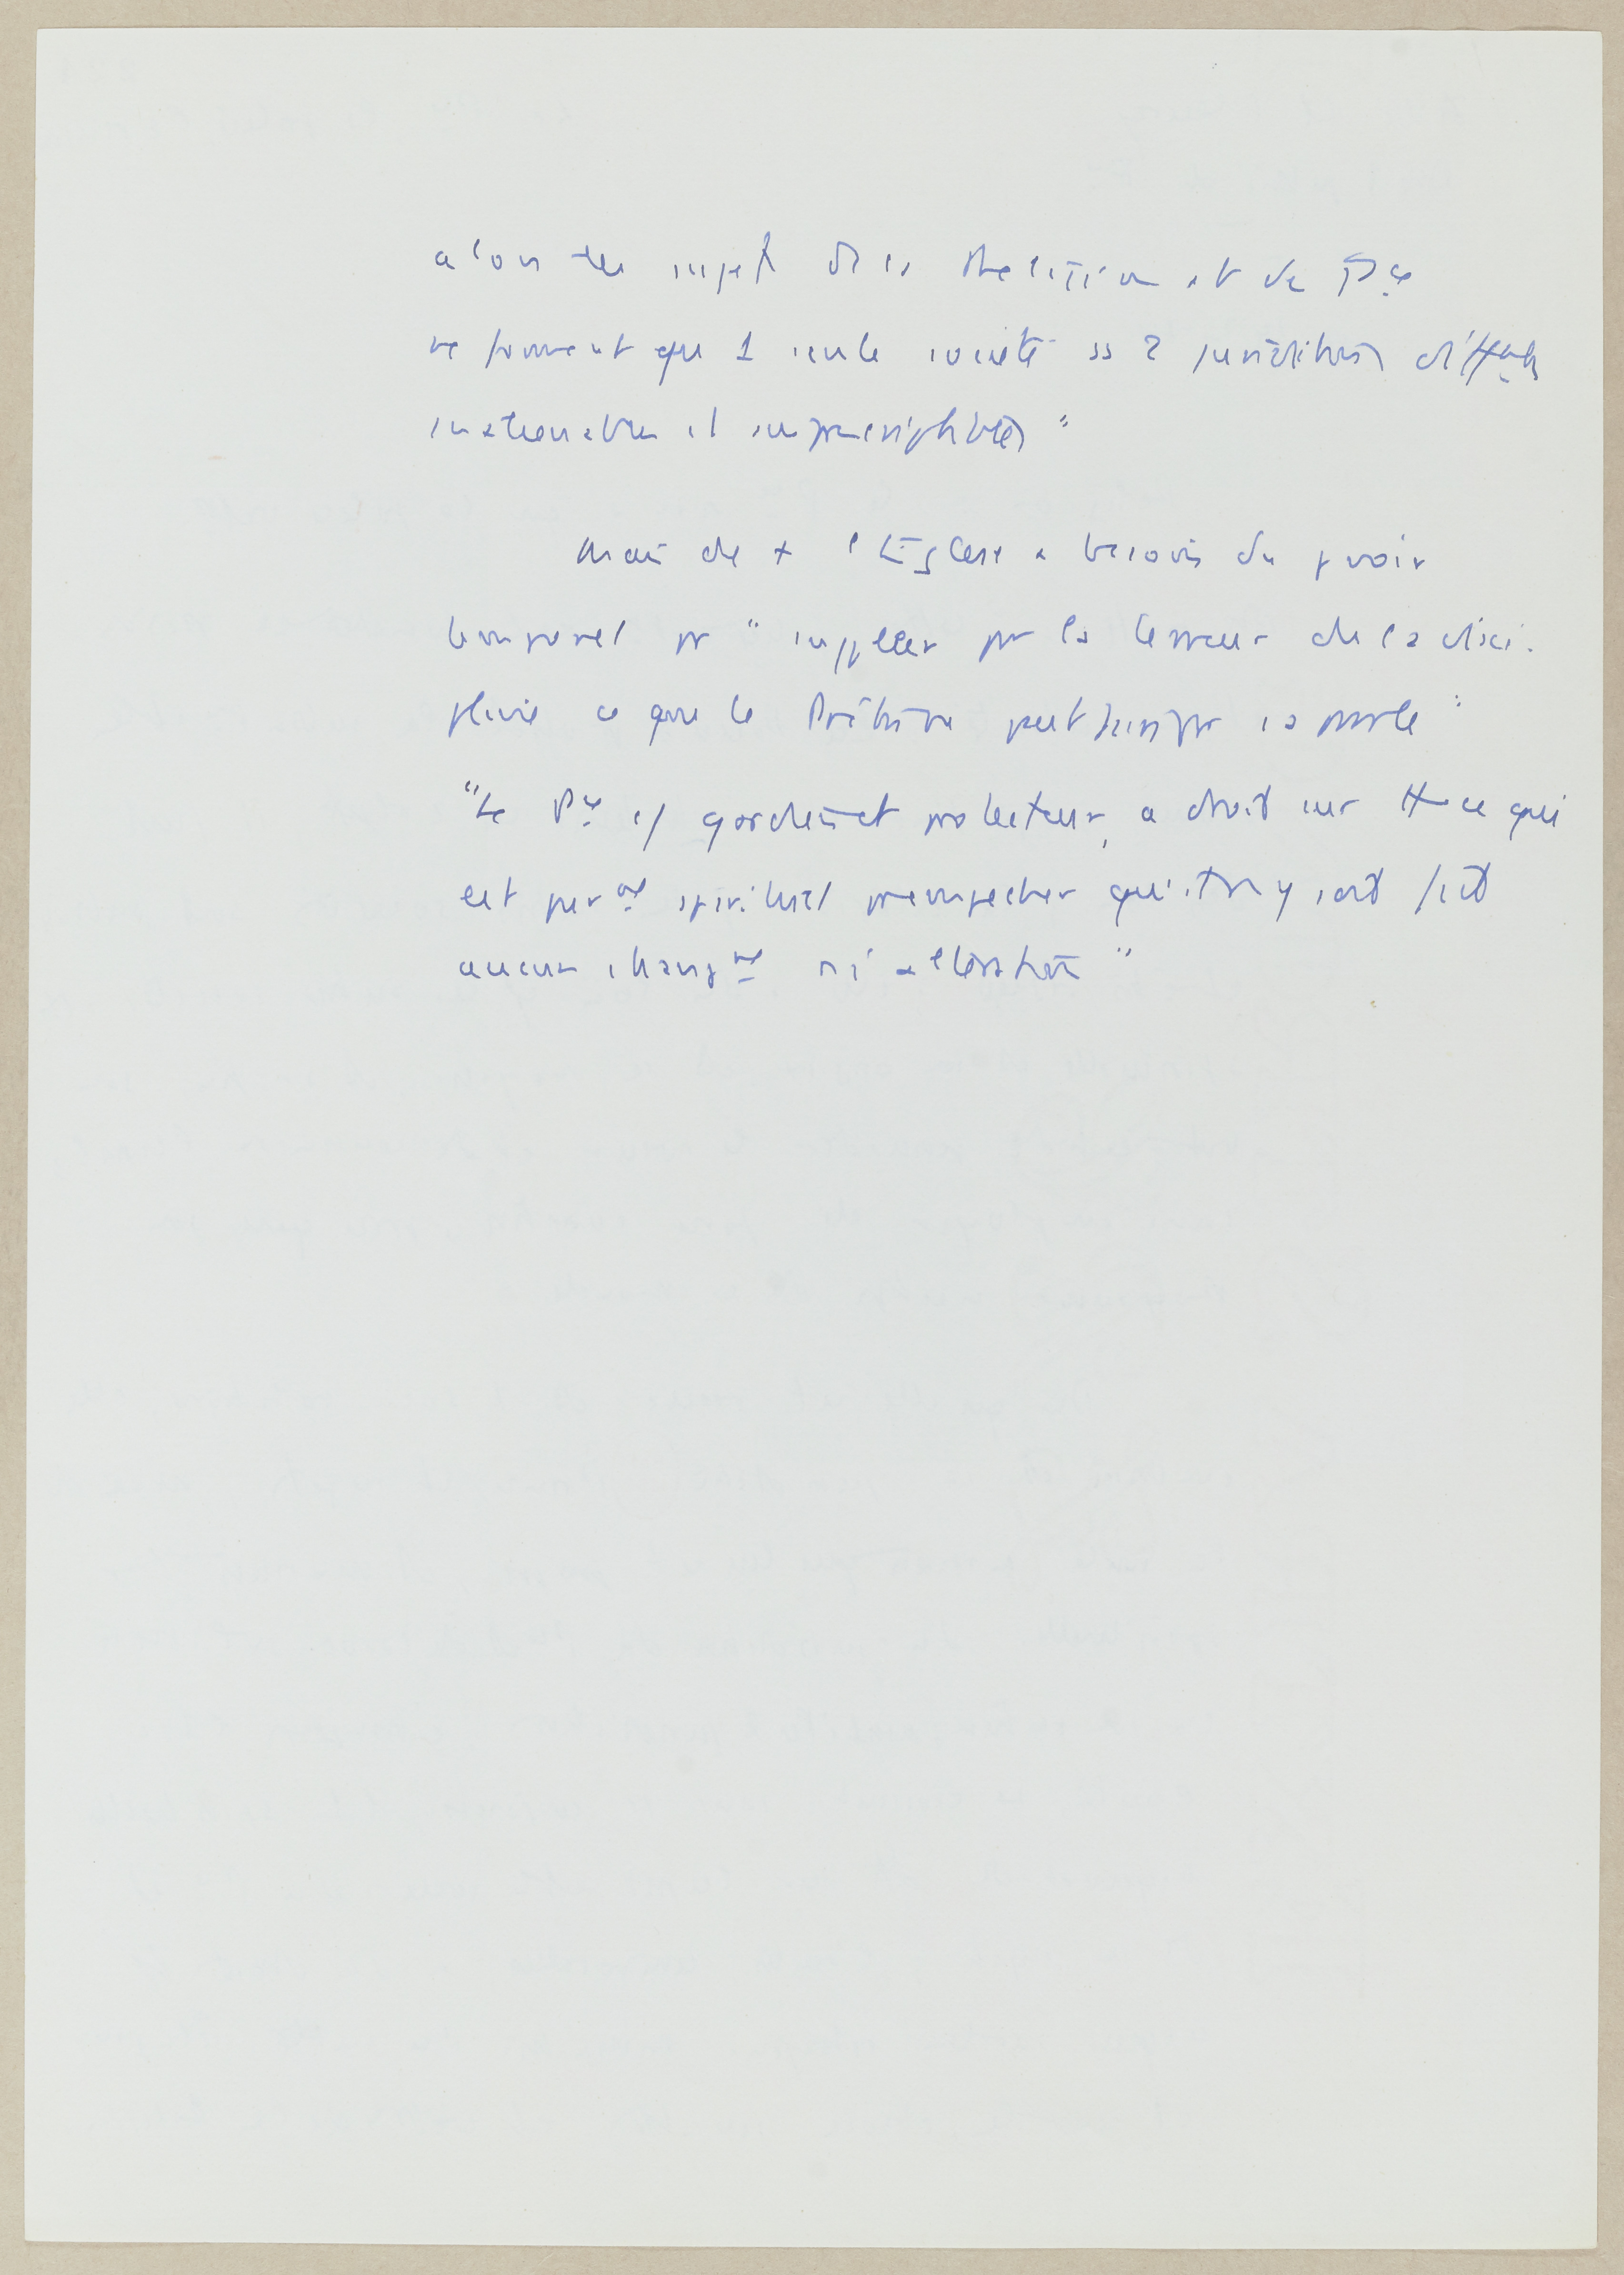 alors les sujets de la Religion et du P^ce
ne forment qu 1 seule société ss 2 juridictions difftes
inaliénables et imprescriptibles"
Mais de + l'Eglise a besoin du pvoir
temporel pr "suppléer par la terreur de la disci-
pline ce que le Prêtre ne peut faire par sa parole"
"Le P^ce gardien et protecteur, a droit sur tt ce qui
est purmt spirituel pr empecher qu'il n'y soit fait
aucun changmt ni altération"